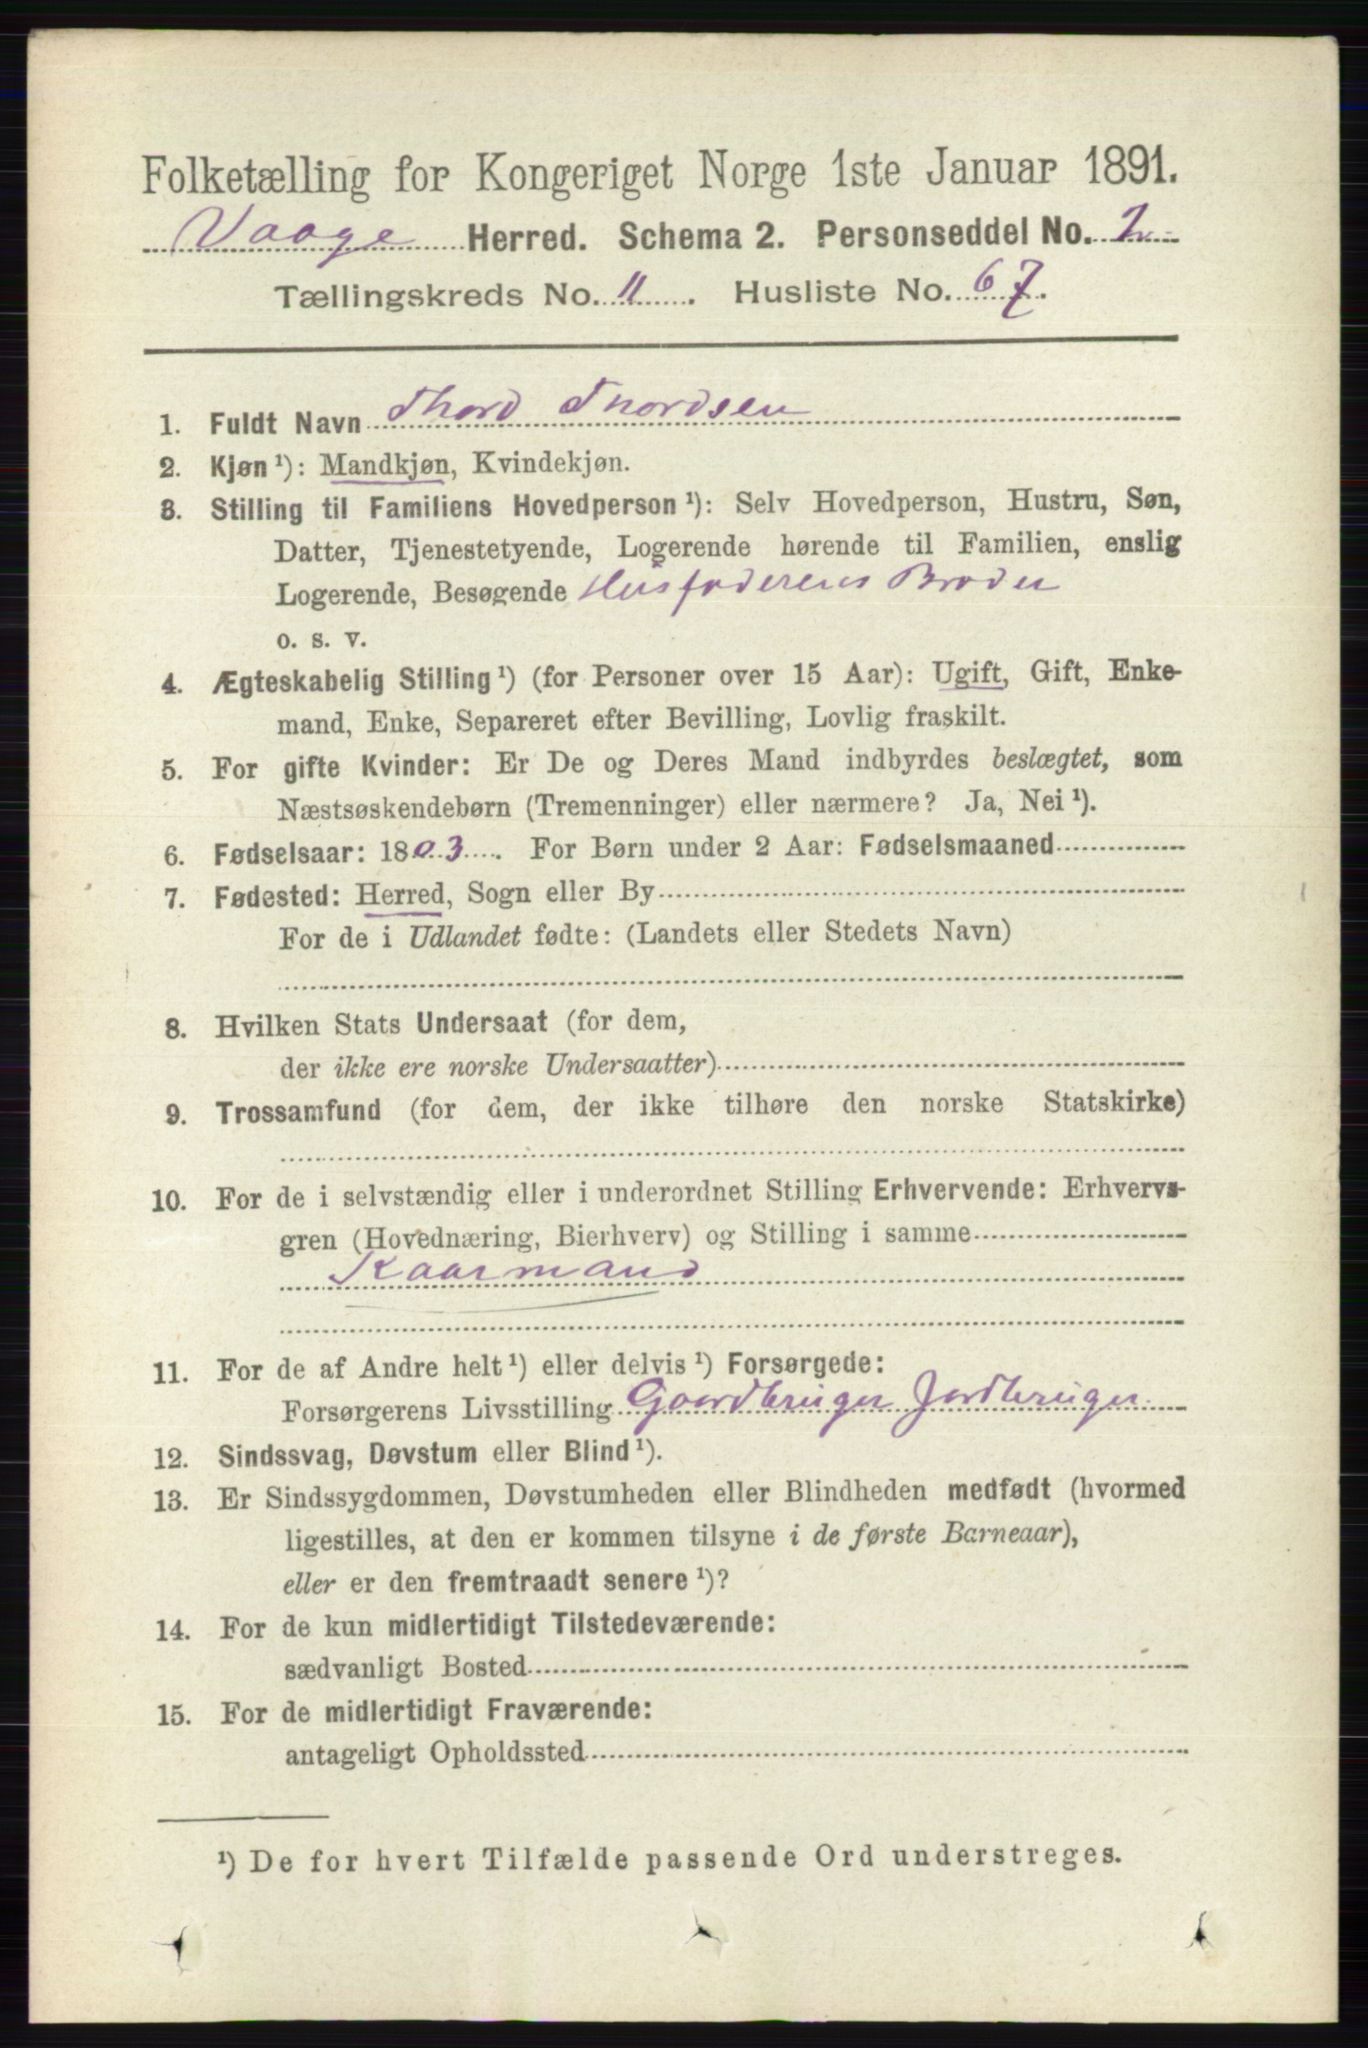 Folketælling for Kongeriget Norge 1ste Januar 1891.
Vaage Herred. Schema 2. Personseddel No. 2
Tællingskreds No. 11. Husliste No. 67.
1. Fuldt Navn Thord Thordsen
2. Kjøn ¹): Mandkjøn, Kvindekjøn.
3. Stilling til Familiens Hovedperson ¹): Selv Hovedperson, Hustru, Søn,
Datter, Tjenestetyende, Logerende hørende til Familien, enslig
Logerende, Besøgende Husfaderens Broder
o. s. v.
4. Ægteskabelig Stilling ¹) (for Personer over 15 Aar): Ugift, Gift, Enke-
mand, Enke, Separeret efter Bevilling, Lovlig fraskilt.
5. For gifte Kvinder: Er De og Deres Mand indbyrdes beslægtet, som
Næstsøskendebørn (Tremenninger) eller nærmere? Ja, Nei ¹).
6. Fødselsaar: 1803. For Børn under 2 Aar: Fødselsmaaned
7. Fødested: Herred, Sogn eller By
For de i Udlandet fødte: (Landets eller Stedets Navn)
8. Hvilken Stats Undersaat (for dem,
der ikke ere norske Undersaatter)
9. Trossamfund (for dem, der ikke tilhøre den norske Statskirke)
10. For de i selvstændig eller i underordnet Stilling Erhvervende: Erhvervs-
gren (Hovednæring, Bierhverv) og Stilling i samme
Kaarmand
11. For de af Andre helt ¹) eller delvis ¹) Forsørgede:
Forsørgerens Livsstilling Gaardbruger Jordbruger.
12. Sindssvag, Døvstum eller Blind ¹).
13. Er Sindssygdommen, Døvstumheden eller Blindheden medfødt (hvormed
ligestilles, at den er kommen tilsyne i de første Barneaar),
eller er den fremtraadt senere ¹)?
14. For de kun midlertidigt Tilstedeværende:
sædvanligt Bosted
15. For de midlertidigt Fraværende:
antageligt Opholdssted
¹) De for hvert Tilfælde passende Ord understreges.